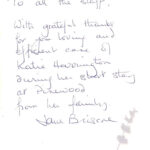 To all the staff.
With grateful thanks
for you loving and
efficient care to
Katie Harrington
during her short stay
at Pinewood
from her family,
Jane